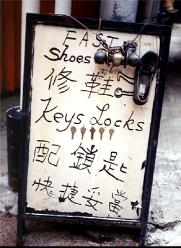 FAST
Shoes
修鞋
Keys Locks
配鎖匙
快捷妥當